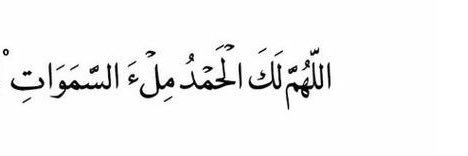 اللّٰهُمَّ لَكَ الْحَمْدُ مِلْءَ السَّمَوَاتِ